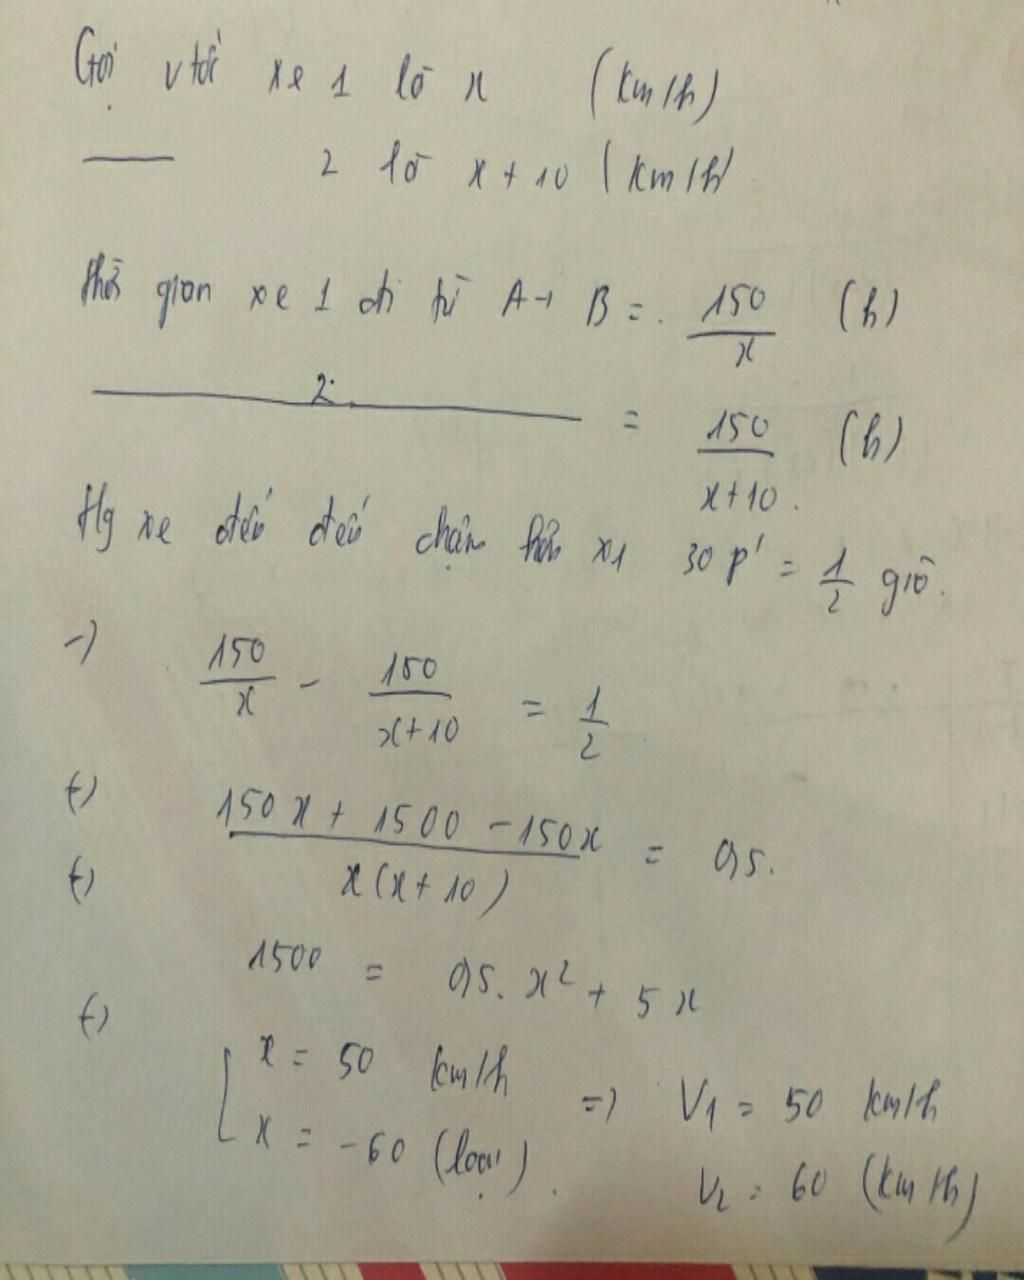 Gọi vtốc xe 1 là x (km/h)
2 là x + 10 (km/h
thời gian xe 1 đi từ A → B = 150/x (h)
2 = 150/x+10 (h)
xe chậm hơn x1 30 p' = 1/2 giờ.
→) 150/x - 150/x+10 = 1/2
(=) 150x + 1500 - 150x / x(x+10) = 0,5.
(=)
1500 = 0,5. x² + 5x
(=)
[ x = 50 km/h => V1 = 50 km/h
x = -60 (loại). V2 = 60 (km/h)